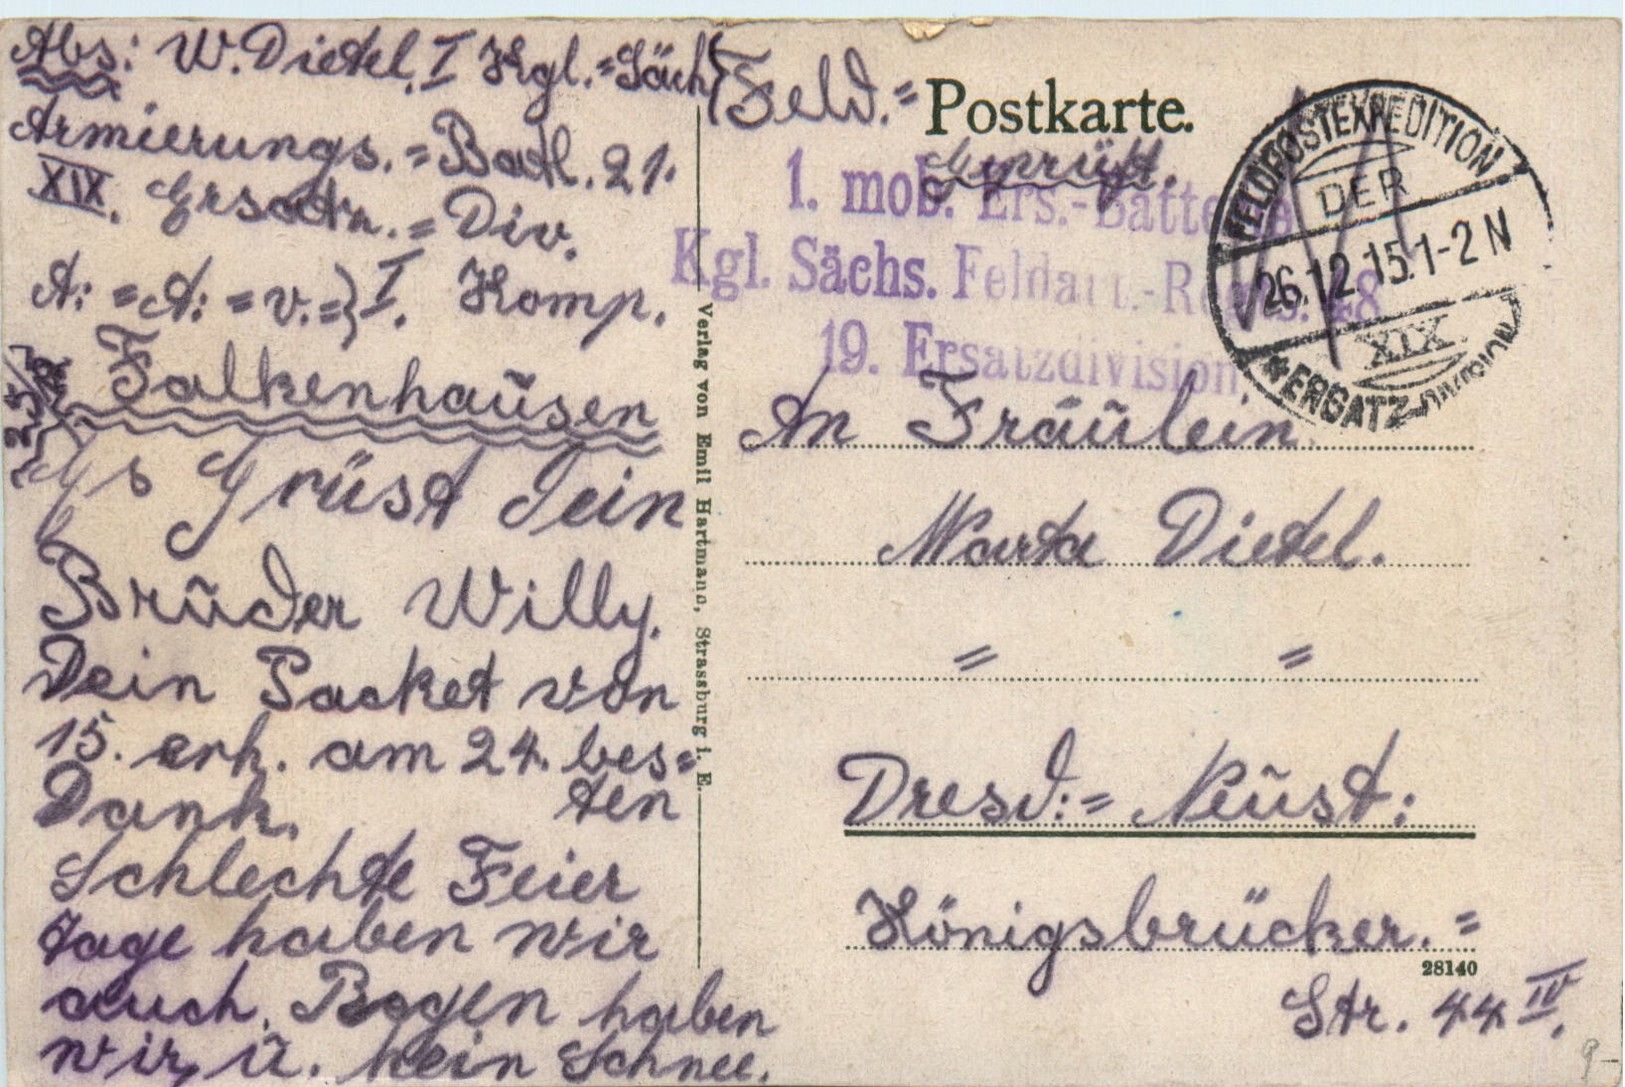 Abs: W. Dietel. I Kgl.=Säch
Armierungs.=Batl. 21.
XIX. Ersatz.=Div.
A:=A:=v.=} I. Komp.
Falkenhaüsen
Es Grüst Dein
Brŭder Willy.
Dein Packet von
15. erh. am 24. bes=
Dank. ten
Schlechte Feier
tage haben wir
auch, Regen haben
wir, ŭ. kein Schnee.
Verlag von Emil Hartmann, Strassburg i. E.
Feld.= Postkarte.
Geprüft.
1. mob. Ers.-Batterie
Kgl. Sächs. Feldart.-Regts. 48
19. Ersatzdivision
FELDPOSTEXPEDITION
DER
26.12.15.1-2N
XIX
* ERSATZ-DIVISION
An Fräŭlein
Marta Dietel.
= =
Dresd.:= Neŭst.:
Königsbrücker.=
28140
Str. 44 IV.